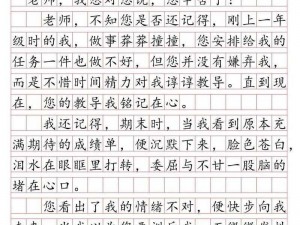 老师，我想对您说，您辛苦了！
老师，不知您是否还记得，刚上一年
级时的我，做事莽莽撞撞，您安排给我的
任务一件也做不好，但您并没有嫌弃我，
而是不惜时间精力对我谆谆教导。直到现
在，您的教导我铭记在心。
我还记得，期末时，当我看到原本充
满期待的成绩单，便沉默下来，脸色苍白，
泪水在眼眶里打转，委屈与不甘一股脑的
堵在心口。
您看出了我的情绪不对，便快步向我